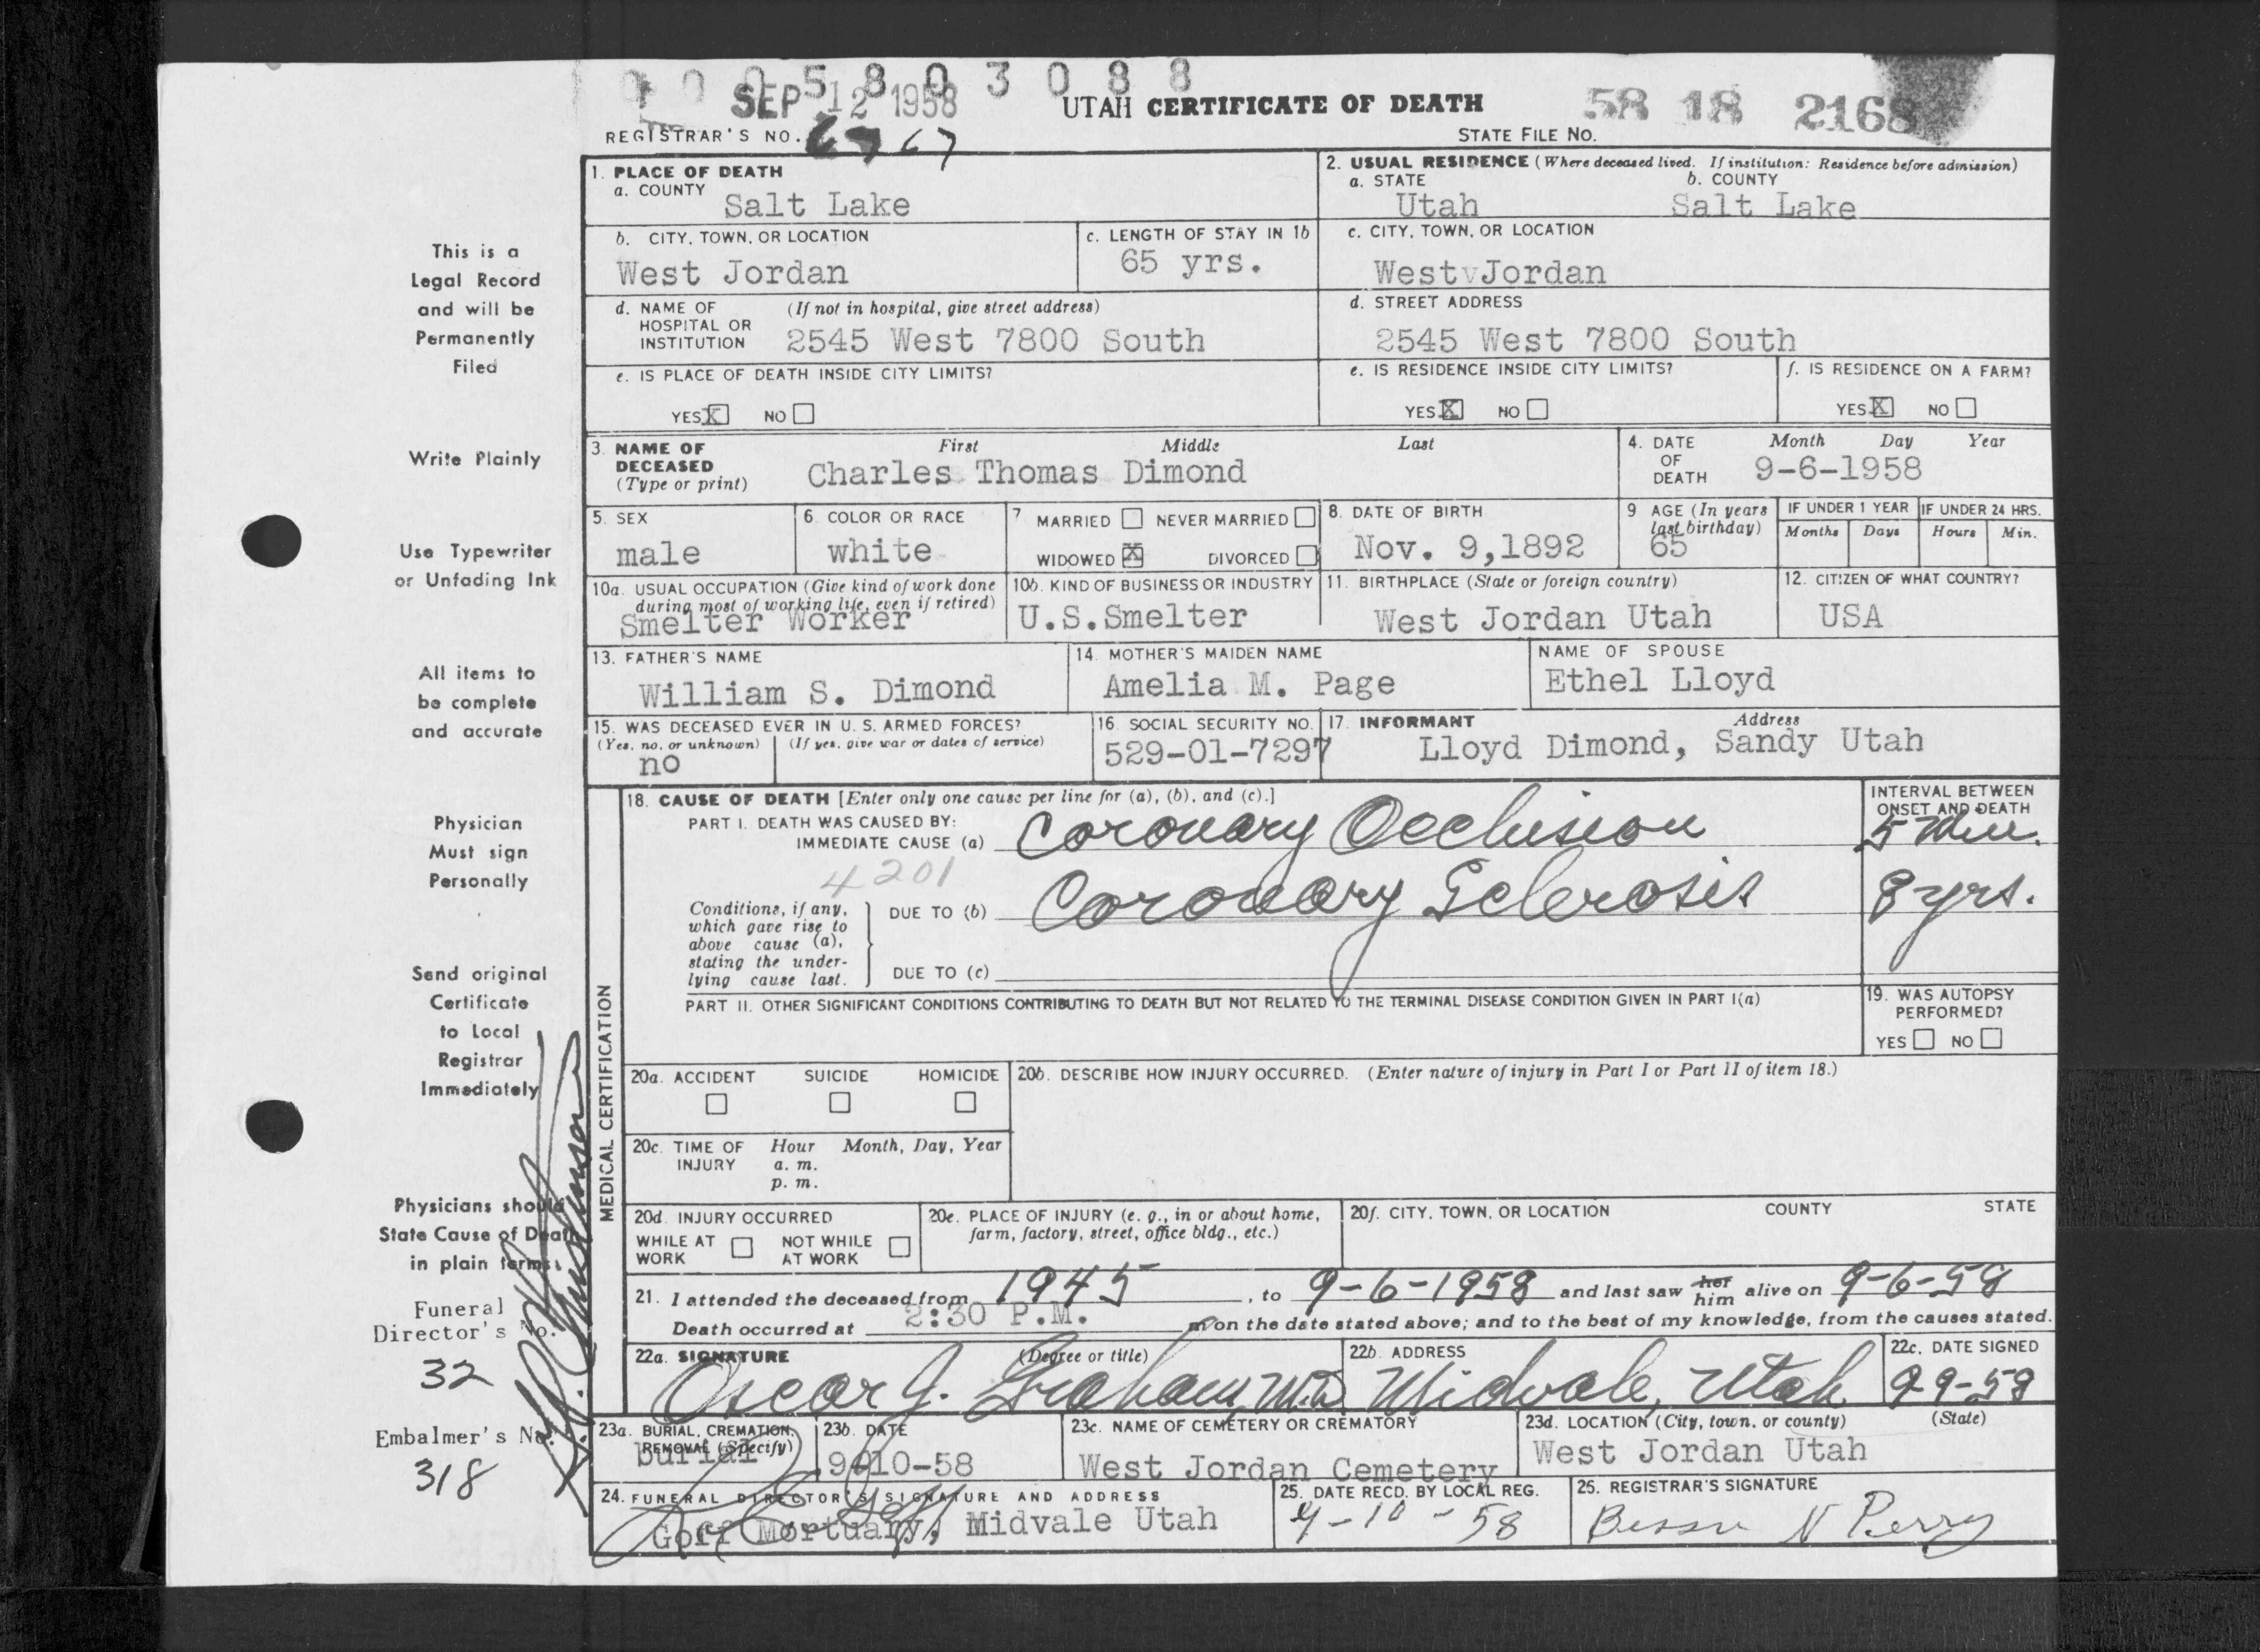 0 0 0 5 8 0 3 0 8 8
SEP 12 1958
UTAH CERTIFICATE OF DEATH
58 18 2168
REGISTRAR'S NO. 67
STATE FILE NO.
1. PLACE OF DEATH
a. COUNTY
Salt Lake
2. USUAL RESIDENCE (Where deceased lived. If institution: Residence before admission)
a. STATE b. COUNTY
Utah Salt Lake
b. CITY, TOWN, OR LOCATION
West Jordan
c. LENGTH OF STAY IN 1b
65 yrs.
c. CITY, TOWN, OR LOCATION
WestvJordan
d. NAME OF HOSPITAL OR INSTITUTION (If not in hospital, give street address)
2545 West 7800 South
d. STREET ADDRESS
2545 West 7800 South
e. IS PLACE OF DEATH INSIDE CITY LIMITS?
YES X NO
e. IS RESIDENCE INSIDE CITY LIMITS?
YES X NO
f. IS RESIDENCE ON A FARM?
YES X NO
3. NAME OF DECEASED (Type or print)
First Middle Last
Charles Thomas Dimond
4. DATE OF DEATH
Month Day Year
9-6-1958
5. SEX
male
6. COLOR OR RACE
white
7 MARRIED NEVER MARRIED
WIDOWED X DIVORCED
8. DATE OF BIRTH
Nov. 9,1892
9 AGE (In years last birthday)
65
IF UNDER 1 YEAR
Months Days
IF UNDER 24 HRS.
Hours Min.
10a. USUAL OCCUPATION (Give kind of work done during most of working life, even if retired)
Smelter Worker
10b. KIND OF BUSINESS OR INDUSTRY
U.S.Smelter
11. BIRTHPLACE (State or foreign country)
West Jordan Utah
12. CITIZEN OF WHAT COUNTRY?
USA
13. FATHER'S NAME
William S. Dimond
14. MOTHER'S MAIDEN NAME
Amelia M. Page
NAME OF SPOUSE
Ethel Lloyd
15. WAS DECEASED EVER IN U. S. ARMED FORCES?
(Yes, no, or unknown) (If yes, give war or dates of service)
no
16. SOCIAL SECURITY NO.
529-01-7297
17. INFORMANT Address
Lloyd Dimond, Sandy Utah
MEDICAL CERTIFICATION
18. CAUSE OF DEATH [Enter only one cause per line for (a), (b), and (c).]
PART I. DEATH WAS CAUSED BY:
IMMEDIATE CAUSE (a) Coronary Occlusion
INTERVAL BETWEEN ONSET AND DEATH
5 Min.
4201
Conditions, if any, which gave rise to above cause (a), stating the underlying cause last.
DUE TO (b) Coronary Sclerosis
8 yrs.
DUE TO (c)
PART II. OTHER SIGNIFICANT CONDITIONS CONTRIBUTING TO DEATH BUT NOT RELATED TO THE TERMINAL DISEASE CONDITION GIVEN IN PART I(a)
19. WAS AUTOPSY PERFORMED?
YES NO
20a. ACCIDENT SUICIDE HOMICIDE
20b. DESCRIBE HOW INJURY OCCURRED. (Enter nature of injury in Part I or Part II of item 18.)
20c. TIME OF INJURY Hour Month, Day, Year
a. m.
p. m.
20d. INJURY OCCURRED
WHILE AT WORK NOT WHILE AT WORK
20e. PLACE OF INJURY (e. g., in or about home, farm, factory, street, office bldg., etc.)
20f. CITY, TOWN, OR LOCATION COUNTY STATE
21. I attended the deceased from 1945, to 9-6-1958 and last saw her him alive on 9-6-58
Death occurred at 2:30 P.M. m on the date stated above; and to the best of my knowledge, from the causes stated.
22a. SIGNATURE (Degree or title)
Oscar J. Graham M.D.
22b. ADDRESS
Midvale, Utah
22c. DATE SIGNED
9-9-58
23a. BURIAL, CREMATION, REMOVAL (Specify)
burial
23b. DATE
9-10-58
23c. NAME OF CEMETERY OR CREMATORY
West Jordan Cemetery
23d. LOCATION (City, town, or county) (State)
West Jordan Utah
24. FUNERAL DIRECTOR'S SIGNATURE AND ADDRESS
Goff Mortuary, Midvale Utah
25. DATE RECD. BY LOCAL REG.
9-10-58
25. REGISTRAR'S SIGNATURE
Bessie N Perry
This is a
Legal Record
and will be
Permanently
Filed
Write Plainly
Use Typewriter
or Unfading Ink
All items to
be complete
and accurate
Physician
Must sign
Personally
Send original
Certificate
to Local
Registrar
Immediately
Physicians should
State Cause of Death
in plain terms.
Funeral
Director's No.
32
Embalmer's No.
318